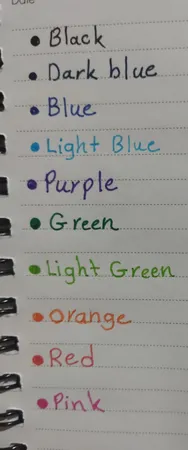 Date
• Black
• Dark blue
• Blue
• Light Blue
• Purple
• Green
• Light Green
• Orange
• Red
• Pink